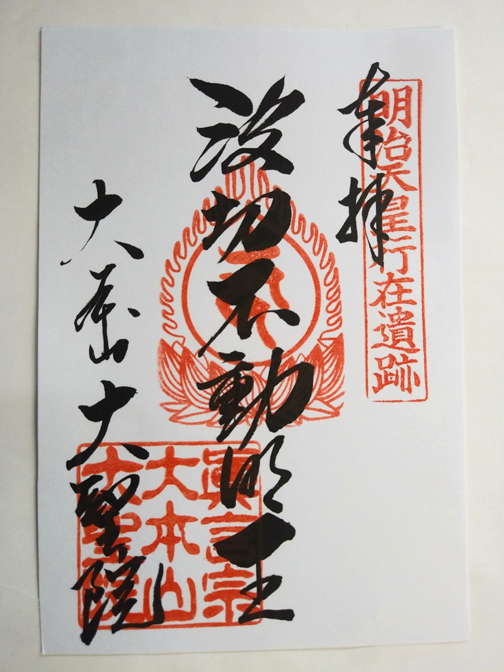 明治天皇行在遺跡
奉拝
波切不動明王
大本山大聖院
眞言宗
大本山
大聖院